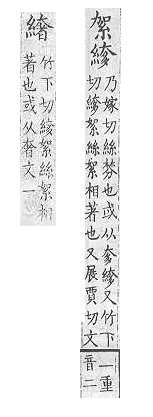 絮䋾
乃嫁切絲棼也或从奓䋾又竹下
切䋾絮絲絮相著也又展賈切文
一重
音二
竹下切䋾絮絲絮相
著也或从奢文一